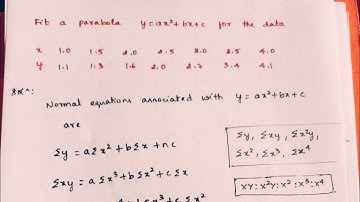 Fit a parabola y=ax²+bx+c for the data
x 1.0 1.5 2.0 2.5 3.0 3.5 4.0
y 1.1 1.3 1.6 2.0 2.7 3.4 4.1
Solⁿ:
Normal equations associated with y=ax²+bx+c
are
Σy = aΣx²+bΣx+nc
Σxy = aΣx³+bΣx²+cΣx
Σy, Σxy, Σx²y,
Σx², Σx³, Σx⁴
xy: x²y: x²: x³: x⁴